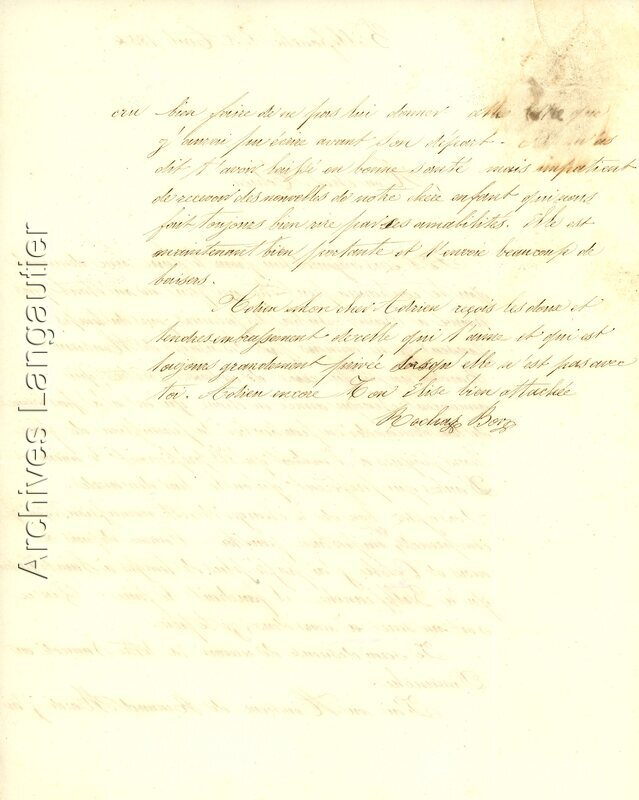 cru bien faire de ne pas lui donner cette lettre que
j'aurai pu écrire avant son départ. m'as
dit t'avoir laissé en bonne santé mais impatient
de recevoir des nouvelles de notre chère enfant qui nous
fait toujours bien rire par ses amabilités. Elle est
maintenant bien portante et t'envoie beaucoup de
baisers.
Adieu mon cher Adrien reçois les doux et
tendres embrassement de celle qui t'aime et qui est
toujours grandement privée lorsqu'elle n'est pas avec
toi. Adieu encore Ton Elise bien attachée
Rochas
Archives Langautier